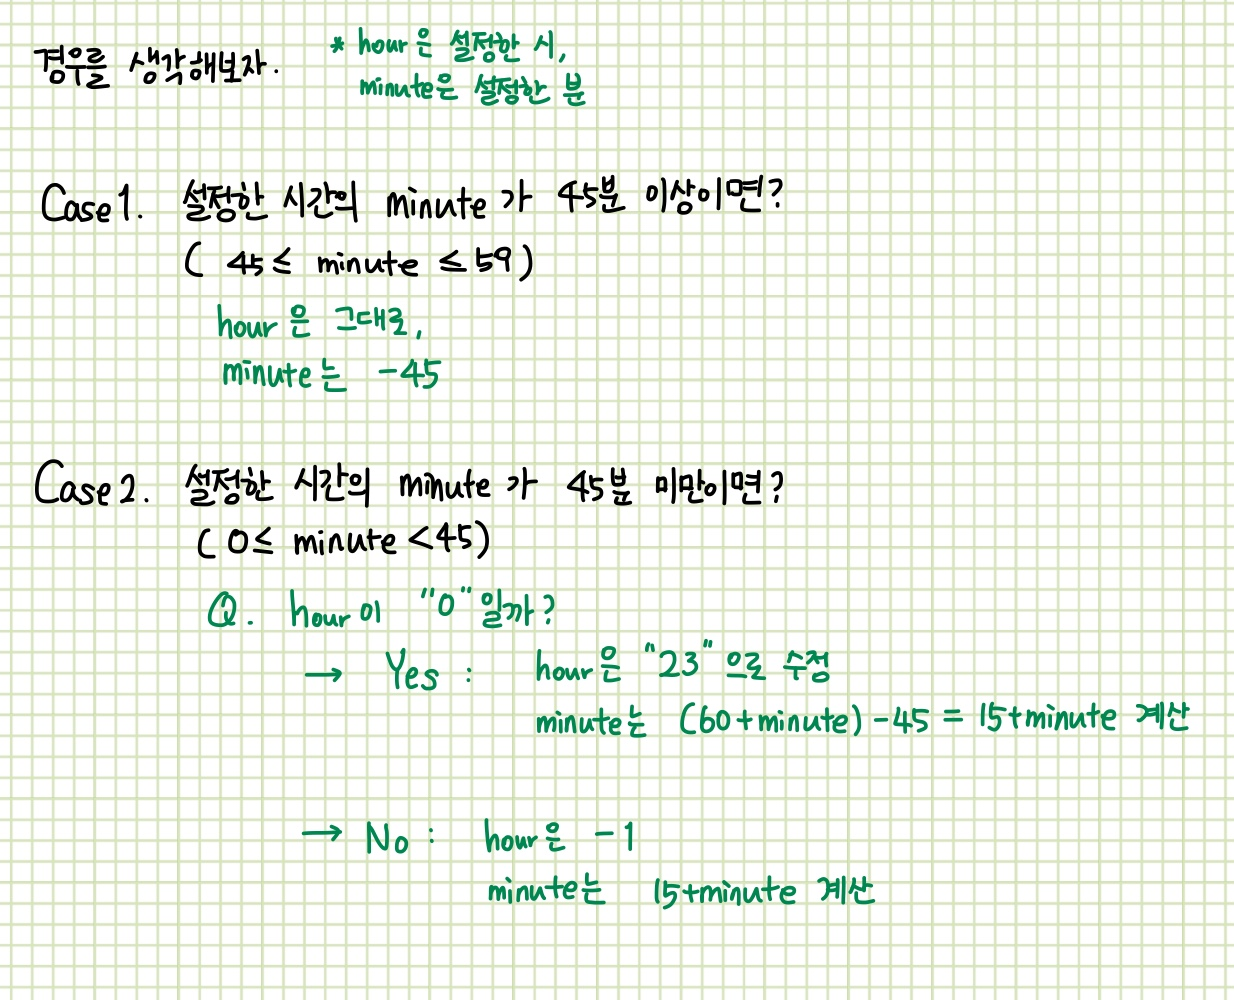 경우를 생각해보자.
* hour은 설정한 시,
minute은 설정한 분
Case 1. 설정한 시간의 minute가 45분 이상이면?
( 45 ≤ minute ≤ 59 )
hour은 그대로,
minute는 -45
Case 2. 설정한 시간의 minute가 45분 미만이면?
( 0 ≤ minute < 45 )
Q. hour이 "0"일까?
→ Yes : hour은 "23"으로 수정
minute는 (60+minute) - 45 = 15+minute 계산
→ No : hour은 -1
minute는 15+minute 계산